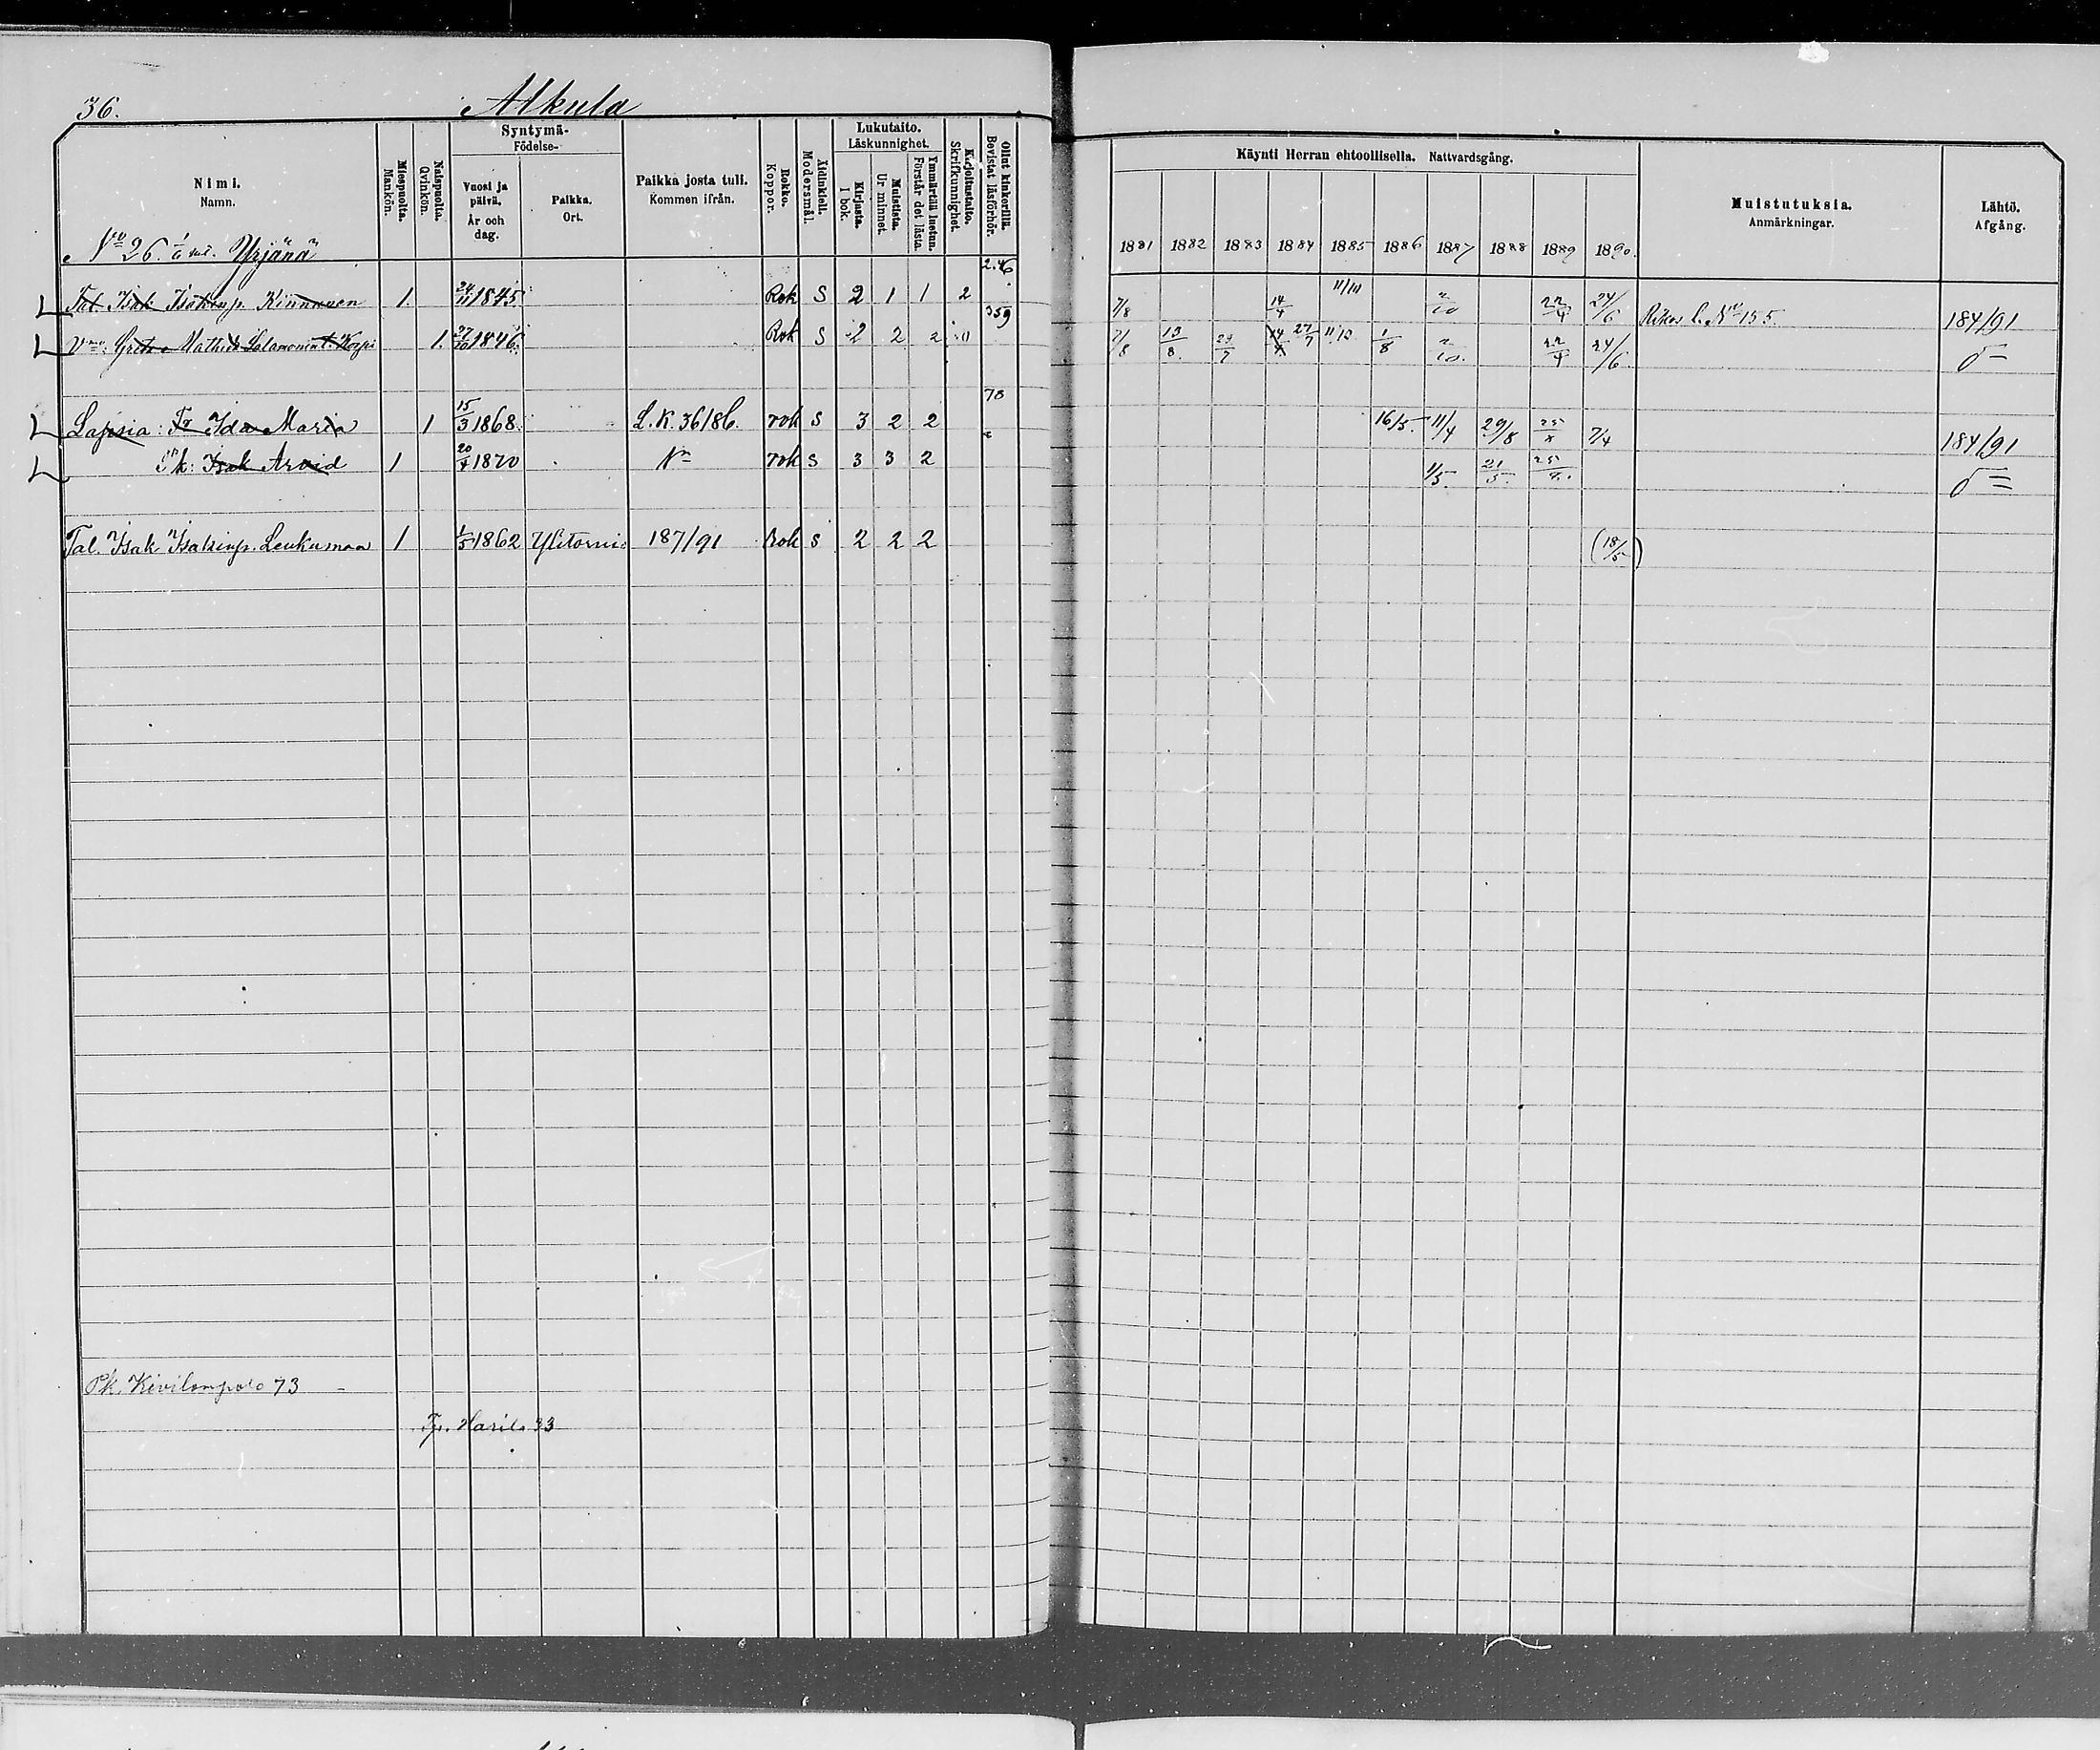 36. Alkula
Nimi. Namn.
Miespuolta. Mankön.
Naispuolta. Qvinkön.
Syntymä- Födelse-
Vuosi ja päivä. År och dag.
Paikka. Ort.
Paikka josta tuli. Kommen ifrån.
Rokko. Koppor.
Äidinkieli. Modersmål.
Lukutaito. Läskunnighet.
Kirjasta. I bok.
Muistista. Ur minnet.
Ymmärtää luetun. Förstår det lästa.
Kirjoitustaito. Skrifkunnighet.
Ollut kinkerillä. Bevistat läsförhör.
Käynti Herran ehtoollisella. Nattvardsgång.
1881 1882 1883 1884 1885 1886 1887 1888 1889 1890.
Muistutuksia. Anmärkningar.
Lähtö. Afgång.
No 26. Yrjänä
Tal. Isak Isakinp. Kinnunen 1. 24/11 1845 Rok S 2 1 1 2 7/8 14/4 11/10 2/10 22/4 24/6 Rikos l. No 155. 184/91
Vmo: Greta Mathilda Salamonint. Korpi 1. 27/10 1846 Rok S 2 2 2 0 359 7/8 13/8. 29/7 14/4 27/7 11/10 1/8 2/10. 22/4 24/6
Lapsia: Tr Ida Maria 1 15/3 1868 L.K. 36/86. rok S 3 2 2 78 16/5. 11/4 29/8 25/8 7/4 184/91
Pk: Isak Arvid 1 20/4 1870 rok S 3 3 2 1/5. 21/5. 25/8.
Tal. Isak Isakinp. Leukumaa 1 1/5 1862 Ylitornio 187/91 Rok S 2 2 2 (18/5)
Pk. Kivilompolo 73
Tp. Harila 33